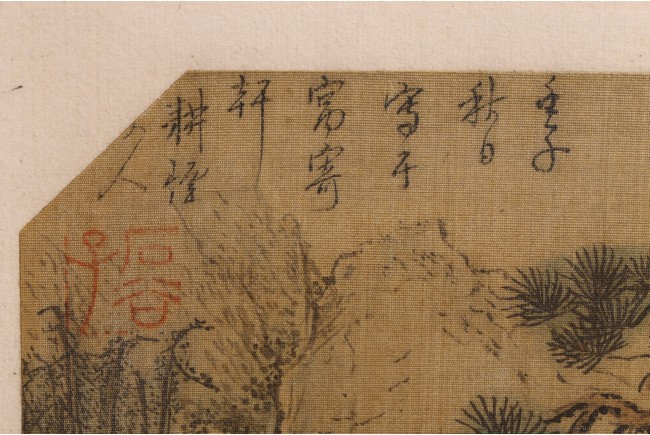 壬子
秋日
寫于
寓寄
軒
耕煙
石谷子